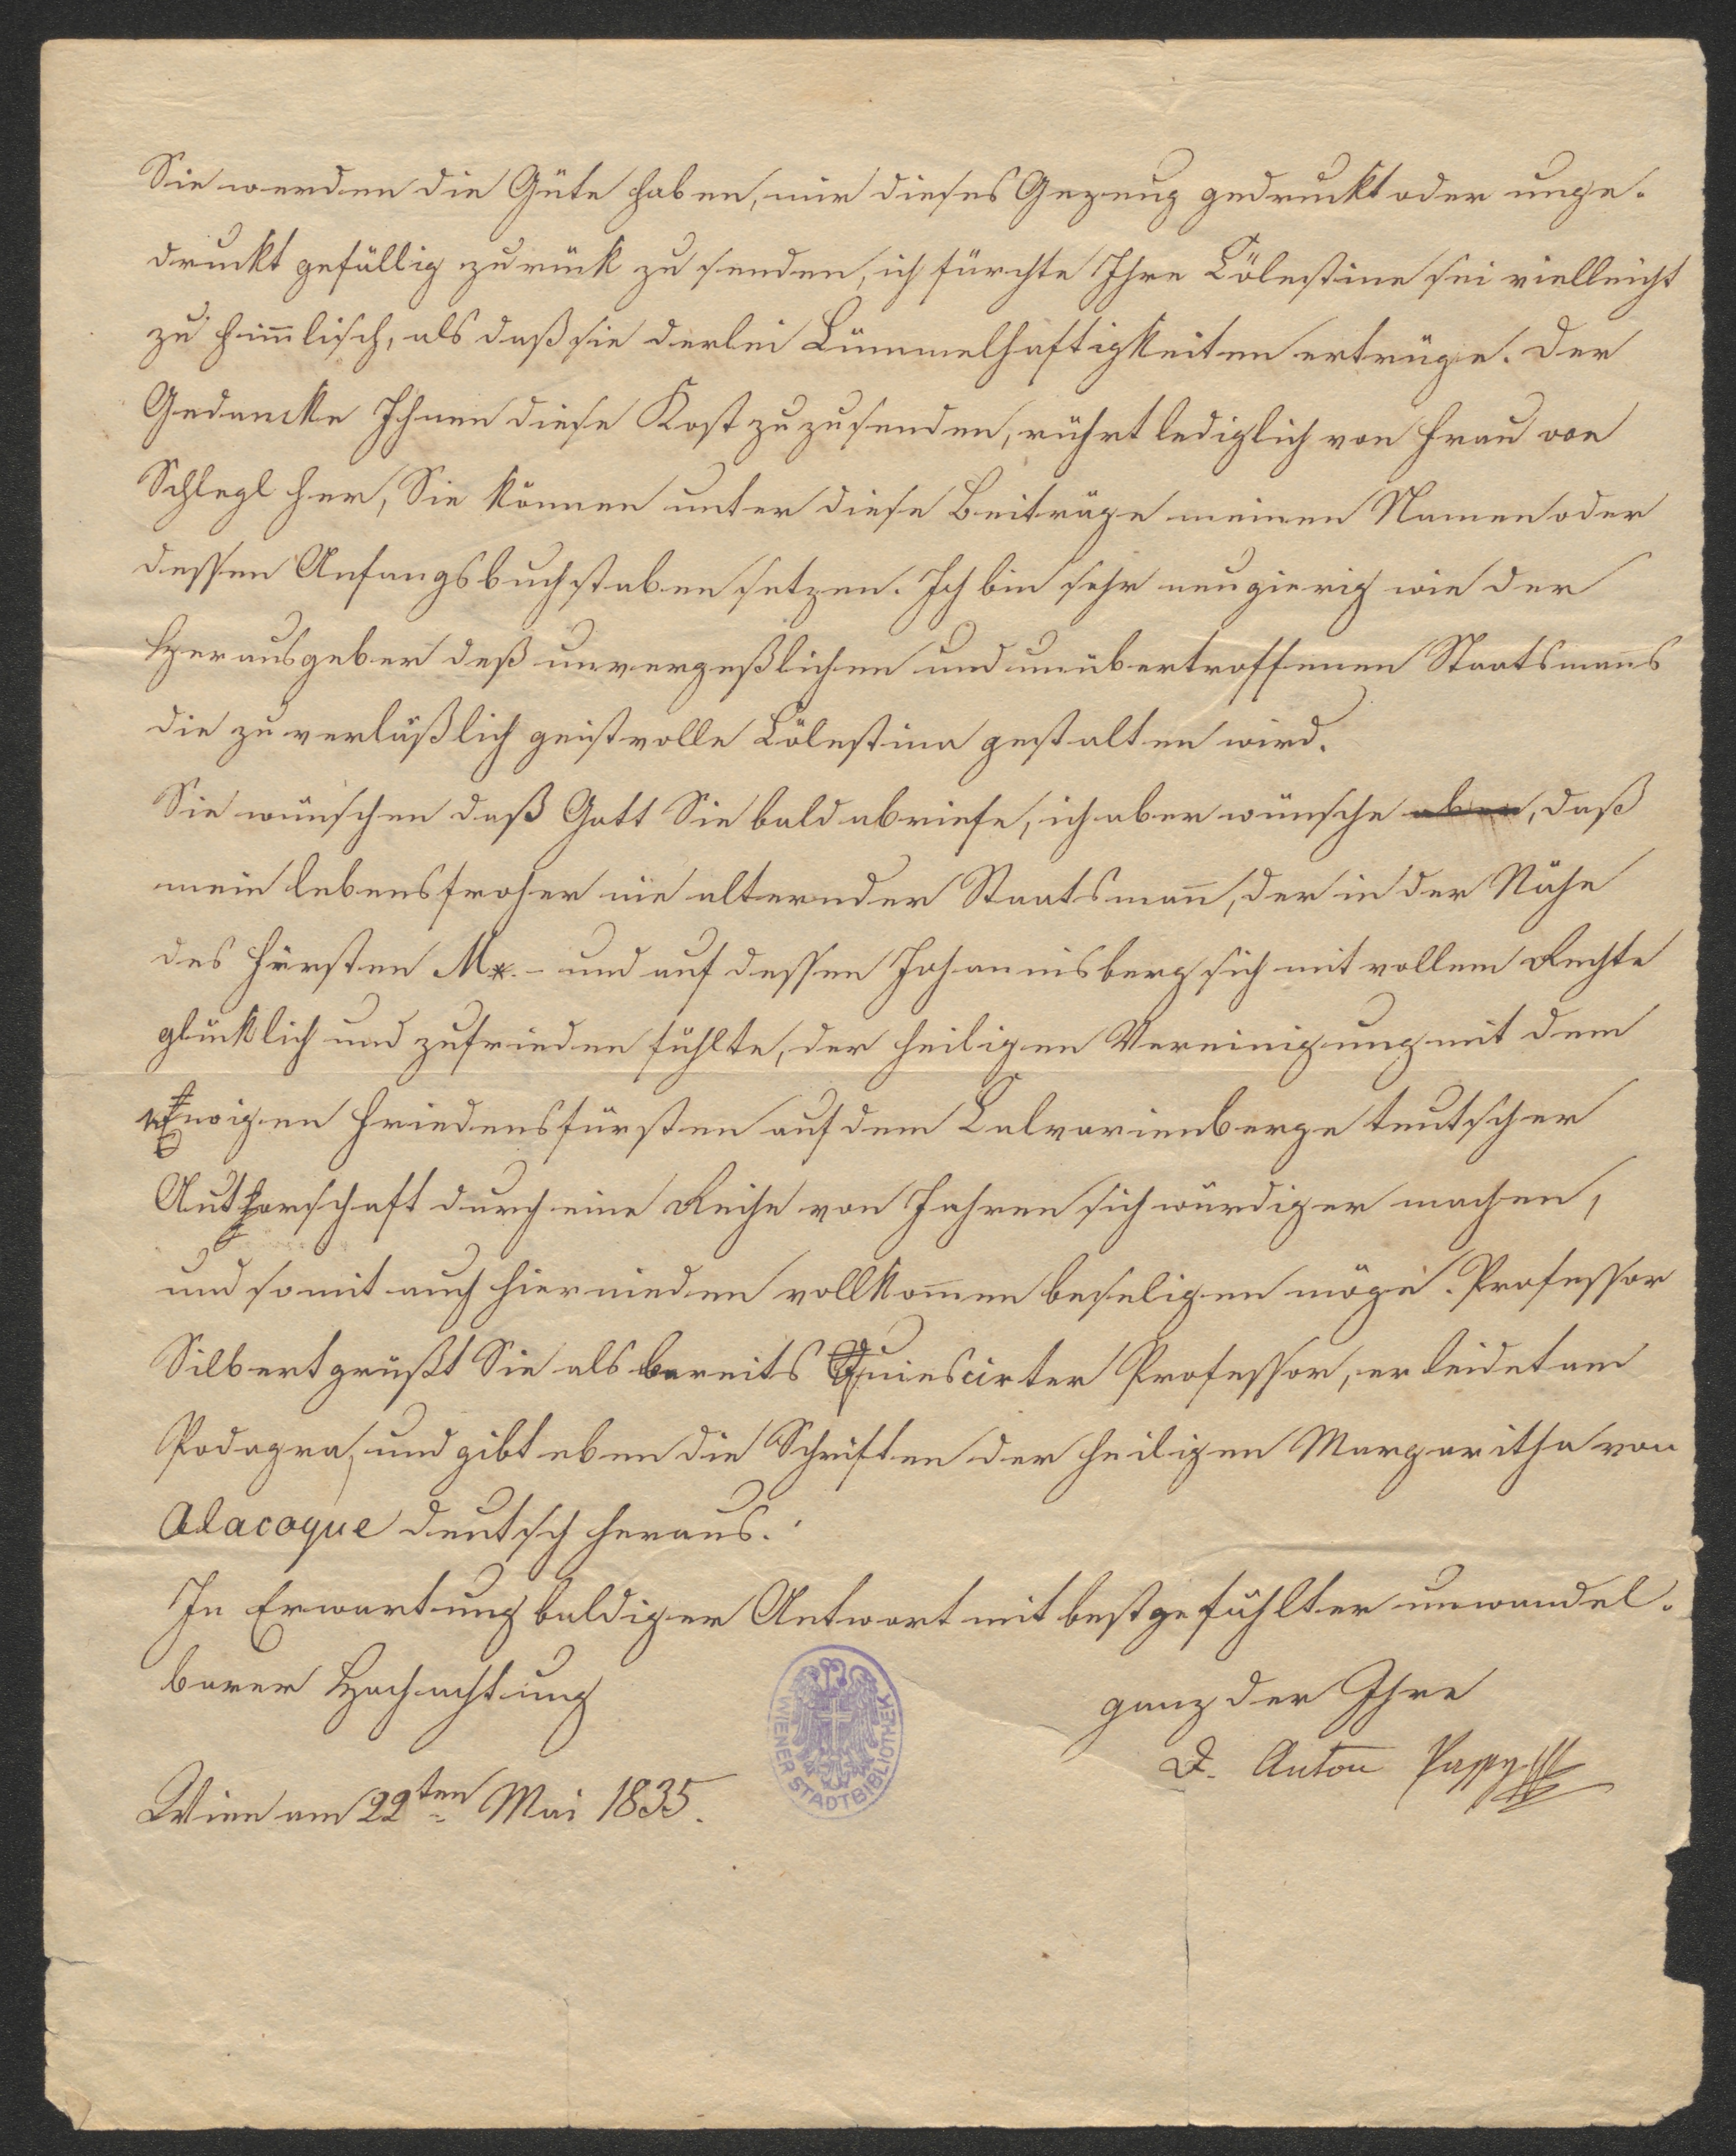 Sie werden die Güte haben, mir dieses Gezeug gedruckt oder unge-
druckt gefällig zurück zu senden, ich fürchte Ihre Cölestine sei vielleicht
zu himlisch, als daß sie derlei Lümmelhaftigkeiten ertrüge. Der
Gedancke Ihnen diese Kost zuzusenden, rührt lediglich von Frau von
Schlegl her, Sie können unter diese Beiträge meinen Namen oder
dessen Anfangsbuchstaben setzen. Ich bin sehr neugierig wie der
Herausgeber deß unvergeßlichen und unübertroffenen Staatsmans
die zuverläßlich geistvolle Cölestina gestalten wird.
Sie wünschen daß Gott Sie bald abriefe, ich aber wünsche aber, daß
mein lebensfroher nie alternder Staatsman, der in der Nähe
des Fürsten M*. - und auf dessen Johannisberg sich mit vollem Rechte
glücklich und zufrieden fühlte, der heiligen Vereinigung mit dem
Ewigen Friedensfürsten auf dem Calvarienberge teutscher
Authorschaft durch eine Reihe von Jahren sich würdiger machen,
und somit auch hiernieden vollkomen beseligen möge. Professor
Silbert grüßt Sie als bereits Quiescirter Professor, er leidet am
Podagra, und gibt eben die Schriften der heiligen Margaritha von
Alacoque deutsch heraus.
In Erwartung baldiger Antwort mit bestgefühlter unwandel-
barer Hochachtung
ganz der Ihre
D. Anton Passy
Wien am 22ten Mai 1835.
WIENER STADTBIBLIOTHEK